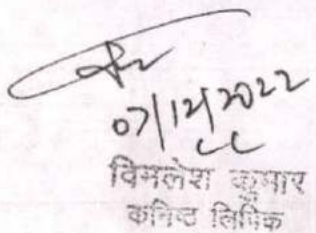 07/12/2022
विमलेश कुमार
कनिष्ठ लिपिक